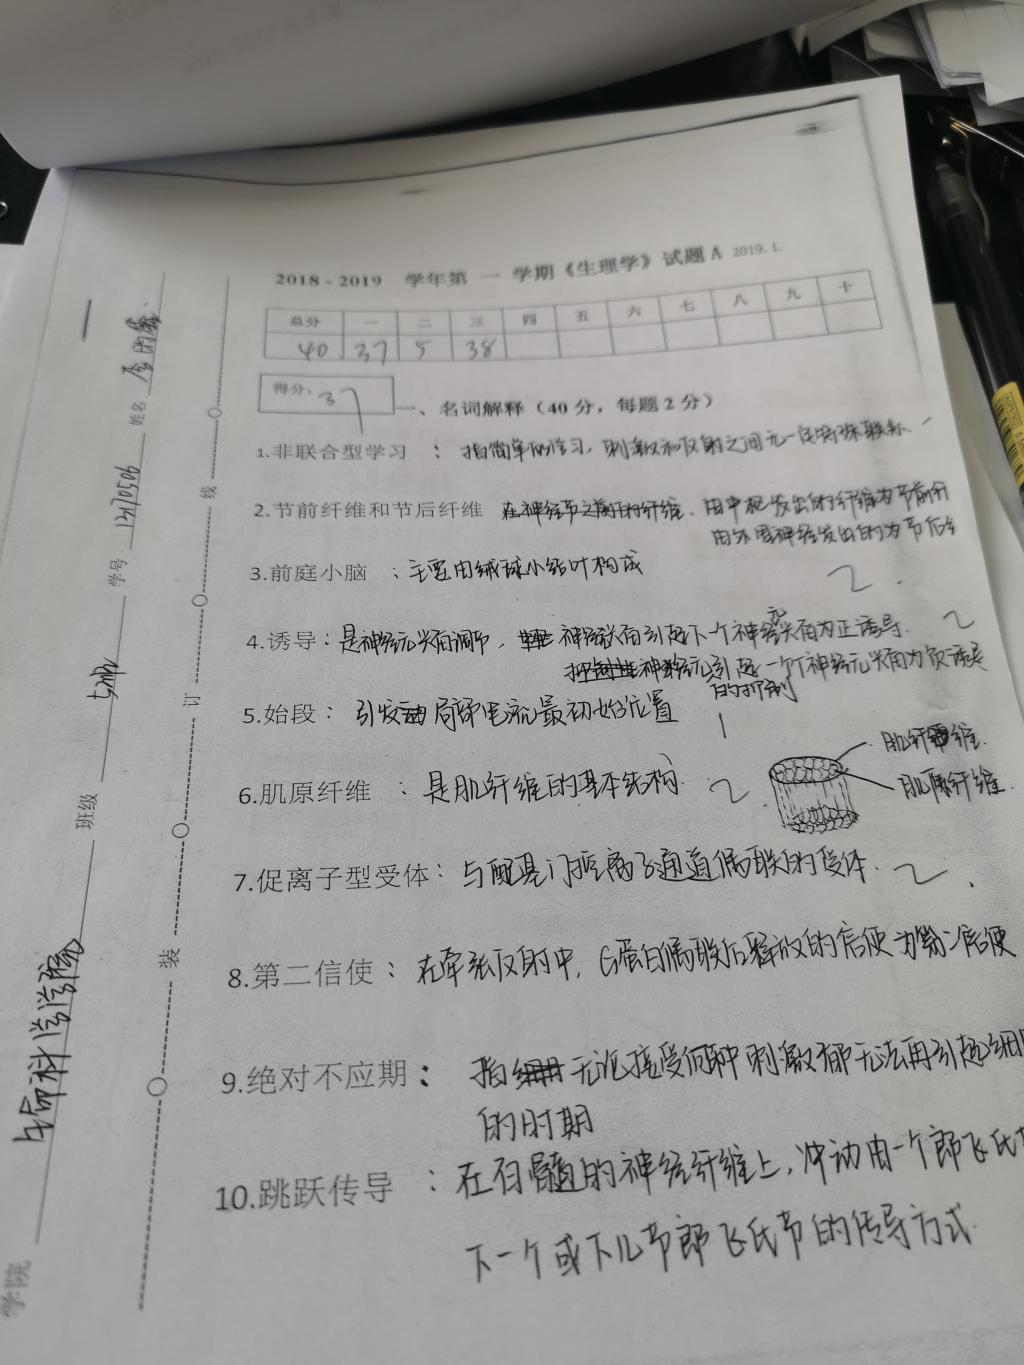 2018-2019 学年第 一 学期《生理学》试题A 2019.1.
总分 一 二 三 四 五 六 七 八 九 十
40 37 5 38
得分: 37
一、名词解释（40分，每题2分）
1.非联合型学习 ： 指简单的学习，刺激和反射之间无一定特殊联系.
2.节前纤维和节后纤维 由中枢发出的纤维为节前纤
由外周神经发出的为节后纤
3.前庭小脑 ：主要由绒球小结叶构成
2.
4.诱导：是神经元兴奋调节， 神经兴奋引起下一个神经元兴奋为正诱导.
2
神经元引起一个神经元兴奋的抑制为负诱导
5.始段： 引发动局部电流最初始位置
1
6.肌原纤维 ：是肌纤维的基本结构.
2.
肌纤维.
肌原纤维.
7.促离子型受体：与配基门控离子通道偶联的受体.
2.
8.第二信使： 在牵张反射中，G蛋白偶联后释放的信使为第二信使
9.绝对不应期： 指无论接受何种刺激都无法再引起细
的时期
10.跳跃传导 ：在有髓的神经纤维上，冲动由一个郎飞氏节
下一个或下几节郎飞氏节的传导方式.
学院 生命科学学院 班级 学号 13170506 姓名
装 订 线